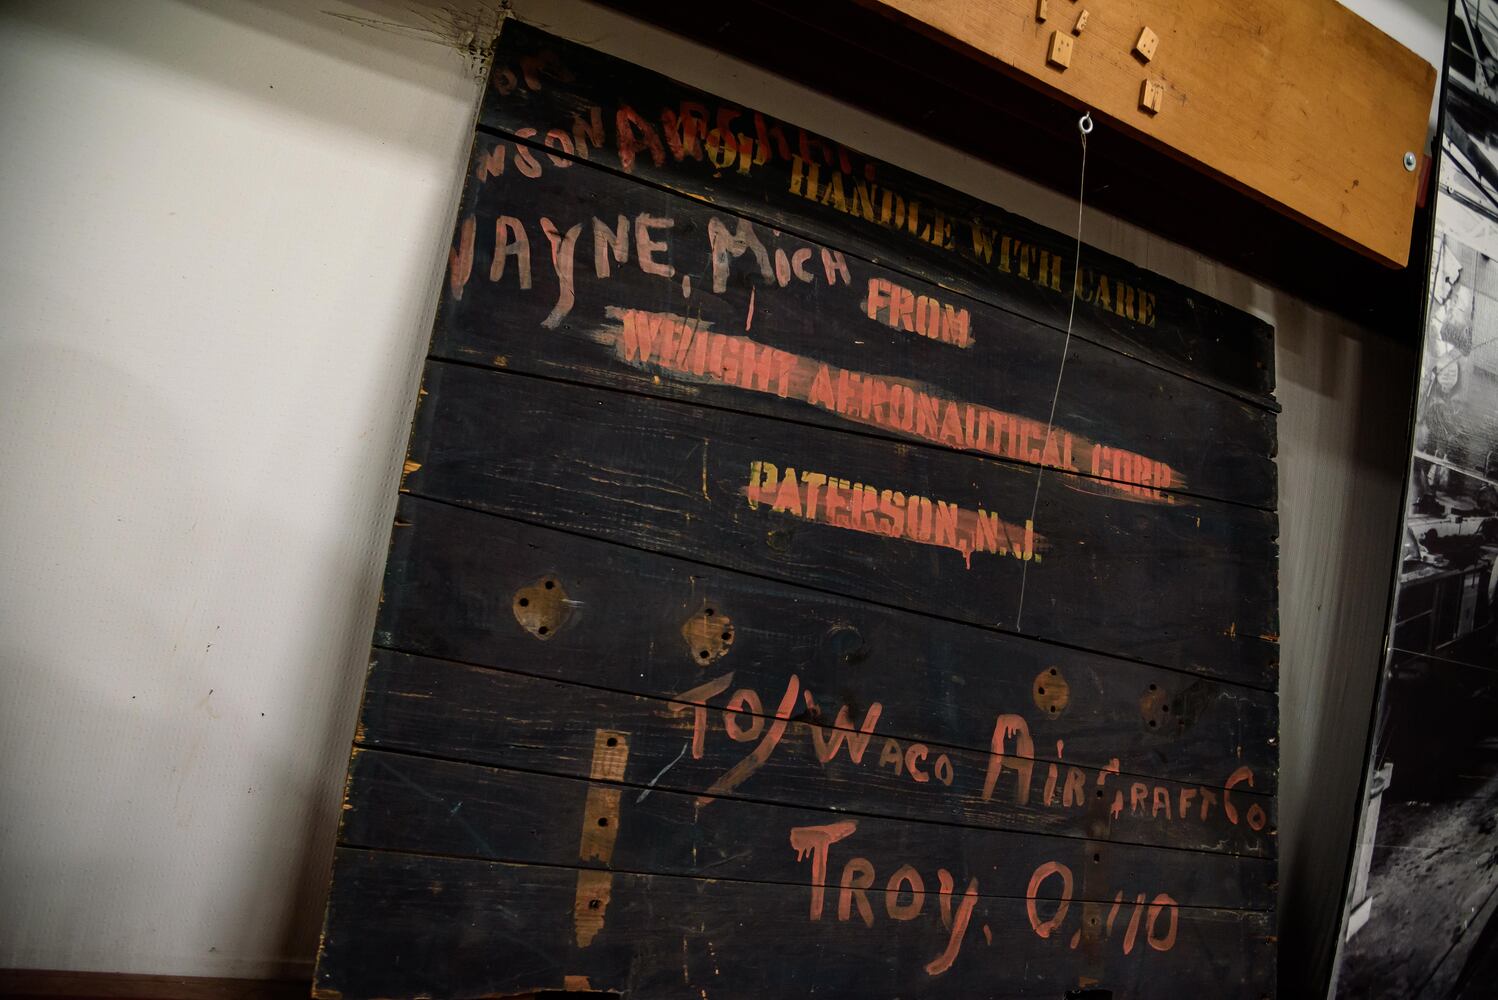 TOP HANDLE WITH CARE
WAYNE, MICH
FROM
WRIGHT AERONAUTICAL CORP.
PATERSON, N.J.
TO/WACO AIRCRAFT CO
TROY, OHIO